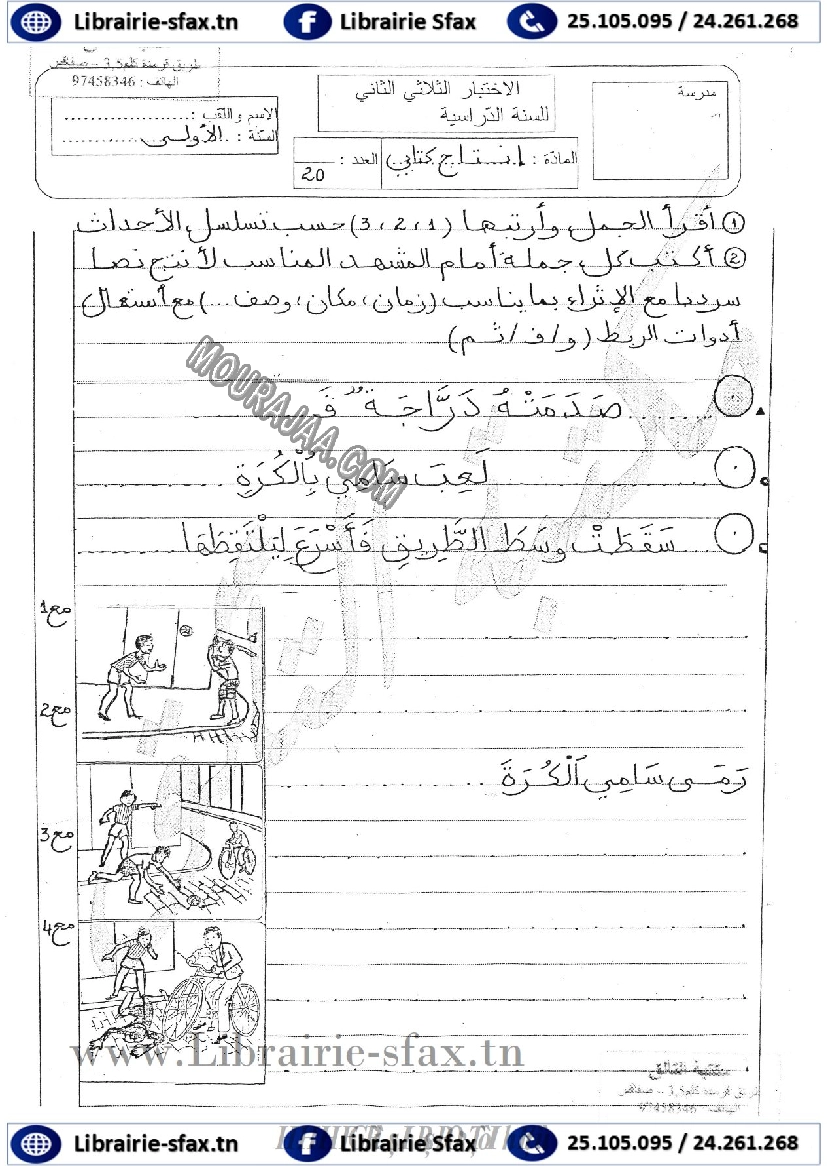 Librairie-sfax.tn Librairie Sfax 25.105.095 / 24.261.268
طريق قرمدة كلم 3,5 – صفاقس
الهاتف : 97458346
مدرسة
الاختبار الثلاثي الثاني
للسنة الدراسية
المادة : انتاج كتابي العدد : 20
الاسم واللقب : ....................
السنة : .الأولى............
① أقرأ الجمل وأرتبها (1 ، 2 ، 3) حسب تسلسل الأحداث
② أكتب كل جملة أمام المشهد المناسب لأنتج نصا
سرديا مع الإثراء بما يناسب (زمان، مكان، وصف ...) مع استعمال
أدوات الربط (و/ف/ثم)
........صَدَمَتْهُ دَرَّاجَةٌ فَ........
MOURAJAA.COM
.........لَعِبَ سَامِي بِالْكُرَةِ.........
....سَقَطَتْ وسَطَ الطَّرِيقِ فَأَسْرَعَ لِيَلْتَقِطَهَا.........
مع1
مع2
رَمَى سَامِي الْكُرَةَ ..............
مع3
مع4
www.Librairie-sfax.tn
طريق قرمدة كلم 3,5 – صفاقس
الهاتف : 97458346
Librairie-sfax.tn Librairie Sfax 25.105.095 / 24.261.268